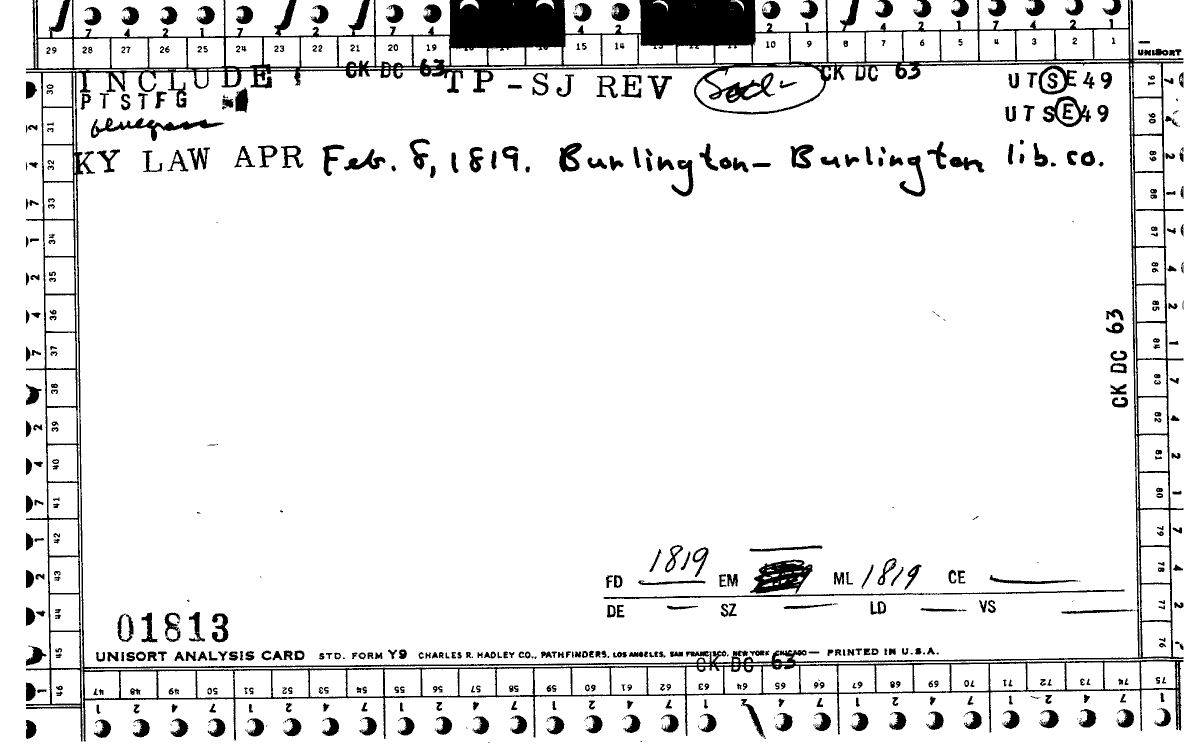 7 4 2 1 7 4 2 1 7 4 4 2 2 1 7 4 2 1 7 4 2 1
29 28 27 26 25 24 23 22 21 20 19 15 14 10 9 8 7 6 5 4 3 2 1
UNISORT
INCLUDE CK DC 63 TP-SJ REV CK DC 63 UTSE49
PTSTFG UTSE49
bluegrass
KY LAW APR Feb. 8, 1819. Burlington- Burlington lib. co.
30 31 32 33 34 35 36 37 38 39 40 41 42 43 44 45 46
91 90 89 88 87 86 85 84 83 82 81 80 79 78 77 76
CK DC 63
FD 1819 EM ML 1819 CE —
DE — SZ — LD — VS —
01813
UNISORT ANALYSIS CARD STD. FORM Y9 CHARLES R. HADLEY CO., PATHFINDERS, LOS ANGELES, SAN FRANCISCO, NEW YORK, CHICAGO— PRINTED IN U.S.A.
CK DC 63
47 48 49 50 51 52 53 54 55 56 57 58 59 60 61 62 63 64 65 66 67 68 69 70 71 72 73 74 75
1 2 4 7 1 2 4 7 1 2 4 7 1 2 4 7 1 2 4 7 1 2 4 7 1 2 4 7 1